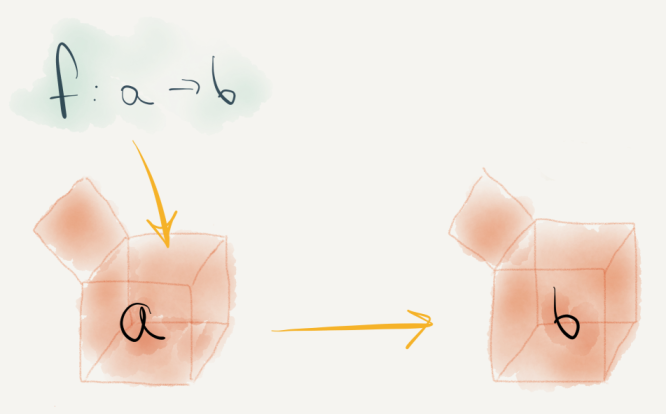 f: a → b
a
b